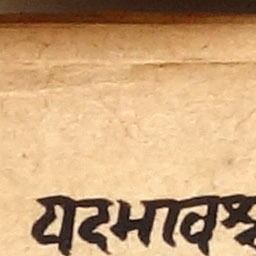 यदभावश्च